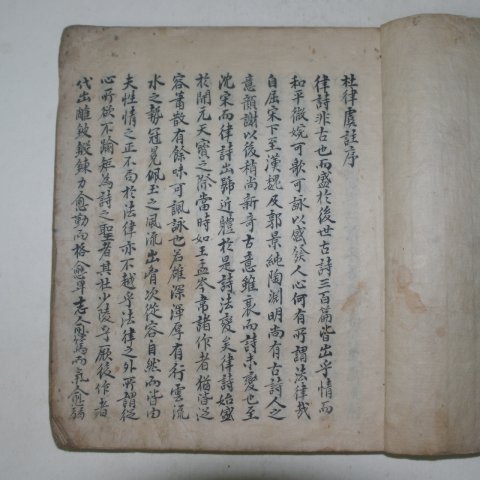 杜律虞註序
律詩非古也而盛於後世古詩三百篇皆出乎情而
和平微婉可歌可詠以感發人心何有所謂法律哉
自屈宋下至漢魏及郭景純陶淵明尚有古詩人之
意顔謝以後稍尚新奇古意雖衰而詩未變也至
沈宋而律詩出號近體於是詩法變矣律詩始盛
於開元天寶之際當時如王孟岑韋諸作者猶皆從
容蕭散有餘味可諷詠也若雄深渾厚有行雲流
水之勢冠冕佩玉之風流出胷次從容自然而皆由
夫性情之正不局於法律亦不越乎法律之外所謂從
心所欲不踰矩爲詩之聖者其杜少陵乎厥後作者
代出雕鎪鍛鍊力愈勤而格愈卑志愈篤而氣愈弱